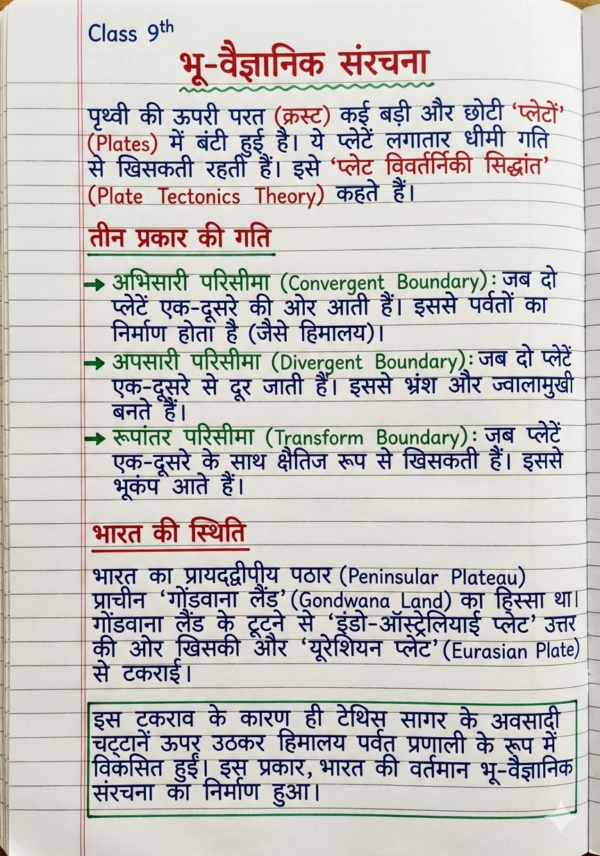 Class 9th
भू-वैज्ञानिक संरचना
पृथ्वी की ऊपरी परत (क्रस्ट) कई बड़ी और छोटी 'प्लेटों'
(Plates) में बंटी हुई है। ये प्लेटें लगातार धीमी गति
से खिसकती रहती हैं। इसे 'प्लेट विवर्तर्निकी सिद्धांत'
(Plate Tectonics Theory) कहते हैं।
तीन प्रकार की गति
→ अभिसारी परिसीमा (Convergent Boundary): जब दो
प्लेटें एक-दूसरे की ओर आती हैं। इससे पर्वतों का
निर्माण होता है (जैसे हिमालय)।
→ अपसारी परिसीमा (Divergent Boundary): जब दो प्लेटें
एक-दूसरे से दूर जाती हैं। इससे भ्रंश और ज्वालामुखी
बनते हैं।
→ रूपांतर परिसीमा (Transform Boundary): जब प्लेटें
एक-दूसरे के साथ क्षैतिज रूप से खिसकती हैं। इससे
भूकंप आते हैं।
भारत की स्थिति
भारत का प्रायदद्वीपीय पठार (Peninsular Plateau)
प्राचीन 'गोंडवाना लैंड' (Gondwana Land) का हिस्सा था।
गोंडवाना लैंड के टूटने से 'इंडो-ऑस्ट्रेलियाई प्लेट' उत्तर
की ओर खिसकी और 'यूरेशियन प्लेट' (Eurasian Plate)
से टकराई।
इस टकराव के कारण ही टेथिस सागर के अवसादी
चट्टानें ऊपर उठकर हिमालय पर्वत प्रणाली के रूप में
विकसित हुईं। इस प्रकार, भारत की वर्तमान भू-वैज्ञानिक
संरचना का निर्माण हुआ।